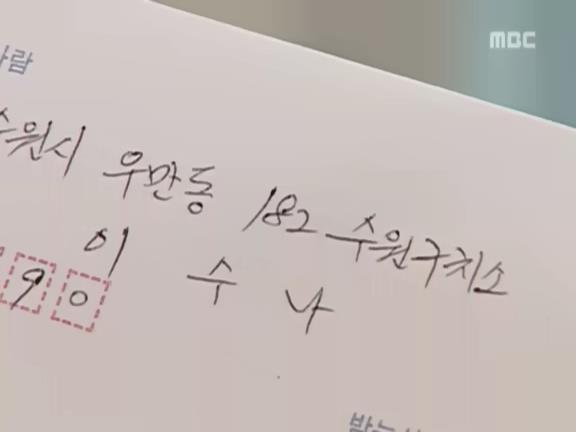 MBC
사람
수원시 우만동 182 수원구치소
이 수 나
90
받는